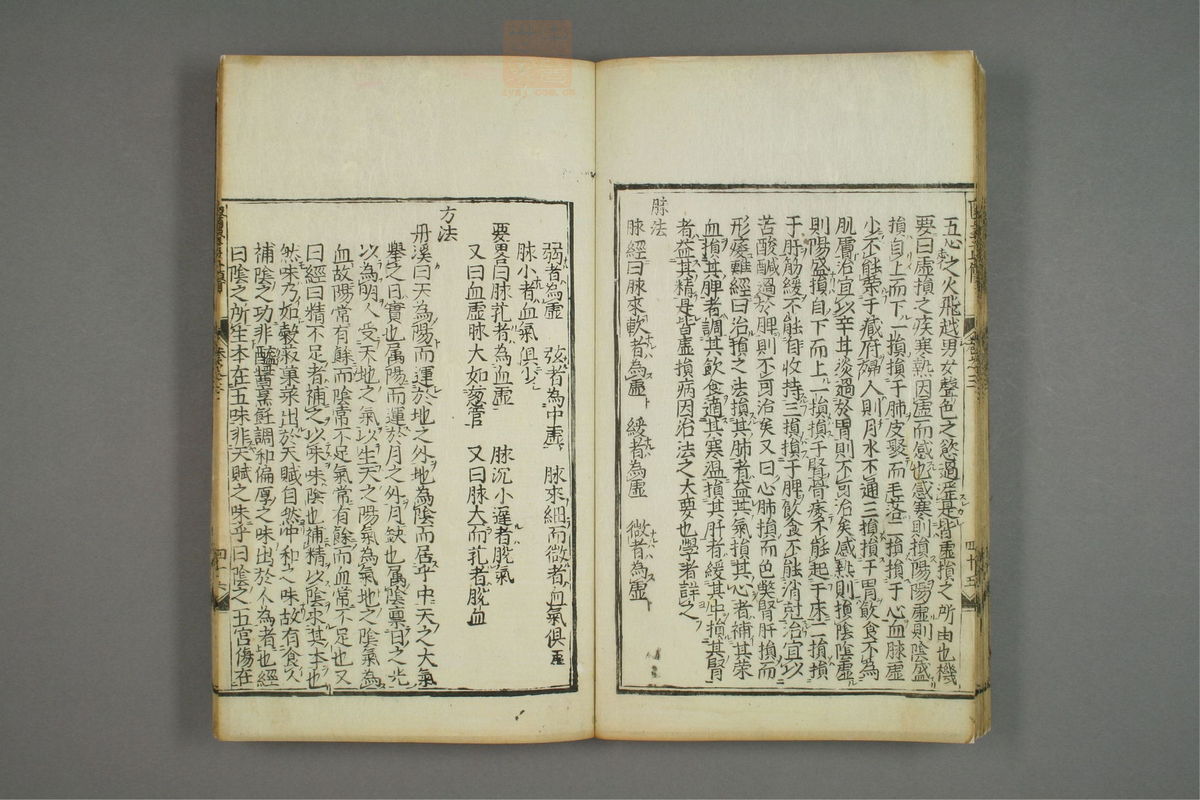 五心之火飛越男女聲色之慾過淫是皆虛損之所由也機
要曰虛損之疾寒熱因虛而感也感寒則損陽陽虛則陰盛
損自上而下一損損于肺皮聚而毛落二損損于心血脉虛
少不能榮于臟府婦人則月水不通三損損于胃飲食不為
肌膚治宜以辛甘淡過於胃則不可治矣感熱則損陰陰虛
則陽盛損自下而上一損損于腎骨痿不能起于床二損損
于肝筋緩不能自收持三損損于脾飲食不能消尅治宜以
苦酸鹹過於脾則不可治矣又曰心肺損而色弊腎肝損而
形痿難經曰治損之法損其肺者益其氣損其心者補其榮
血損其脾者調其飲食適其寒温損其肝者緩其中損其腎
者益其精是皆虛損病因治法之大要也學者詳之
脉法
脉經曰脉來軟者為虛 緩者為虛 微者為虛
弱者為虛 弦者為中虛 脉來細而微者血氣俱虛
脉小者血氣俱少
要畧曰脉芤者為血虛 脉沉小遲者脫氣
又曰血虛脉大如葱管 又曰脉大而芤者脫血
方法
丹溪曰天為陽而運於地之外地為陰而居乎中天之大氣
舉之日實也屬陽而運於月之外月缺也屬陰稟日之光
以為明人受天地之氣以生天之陽氣為氣地之陰氣為
血故陽常有餘而陰常不足氣常有餘而血常不足也又
曰經曰精不足者補之以味味陰也補精以陰求其本也
然味乃如穀菽菓菜出於天賦自然冲和之味故有食人
補陰之功非醯醬烹飪調和偏厚之味出於人為者也經
曰陰之所生本在五味非天賦之味乎曰陰之五宮傷在
四十五